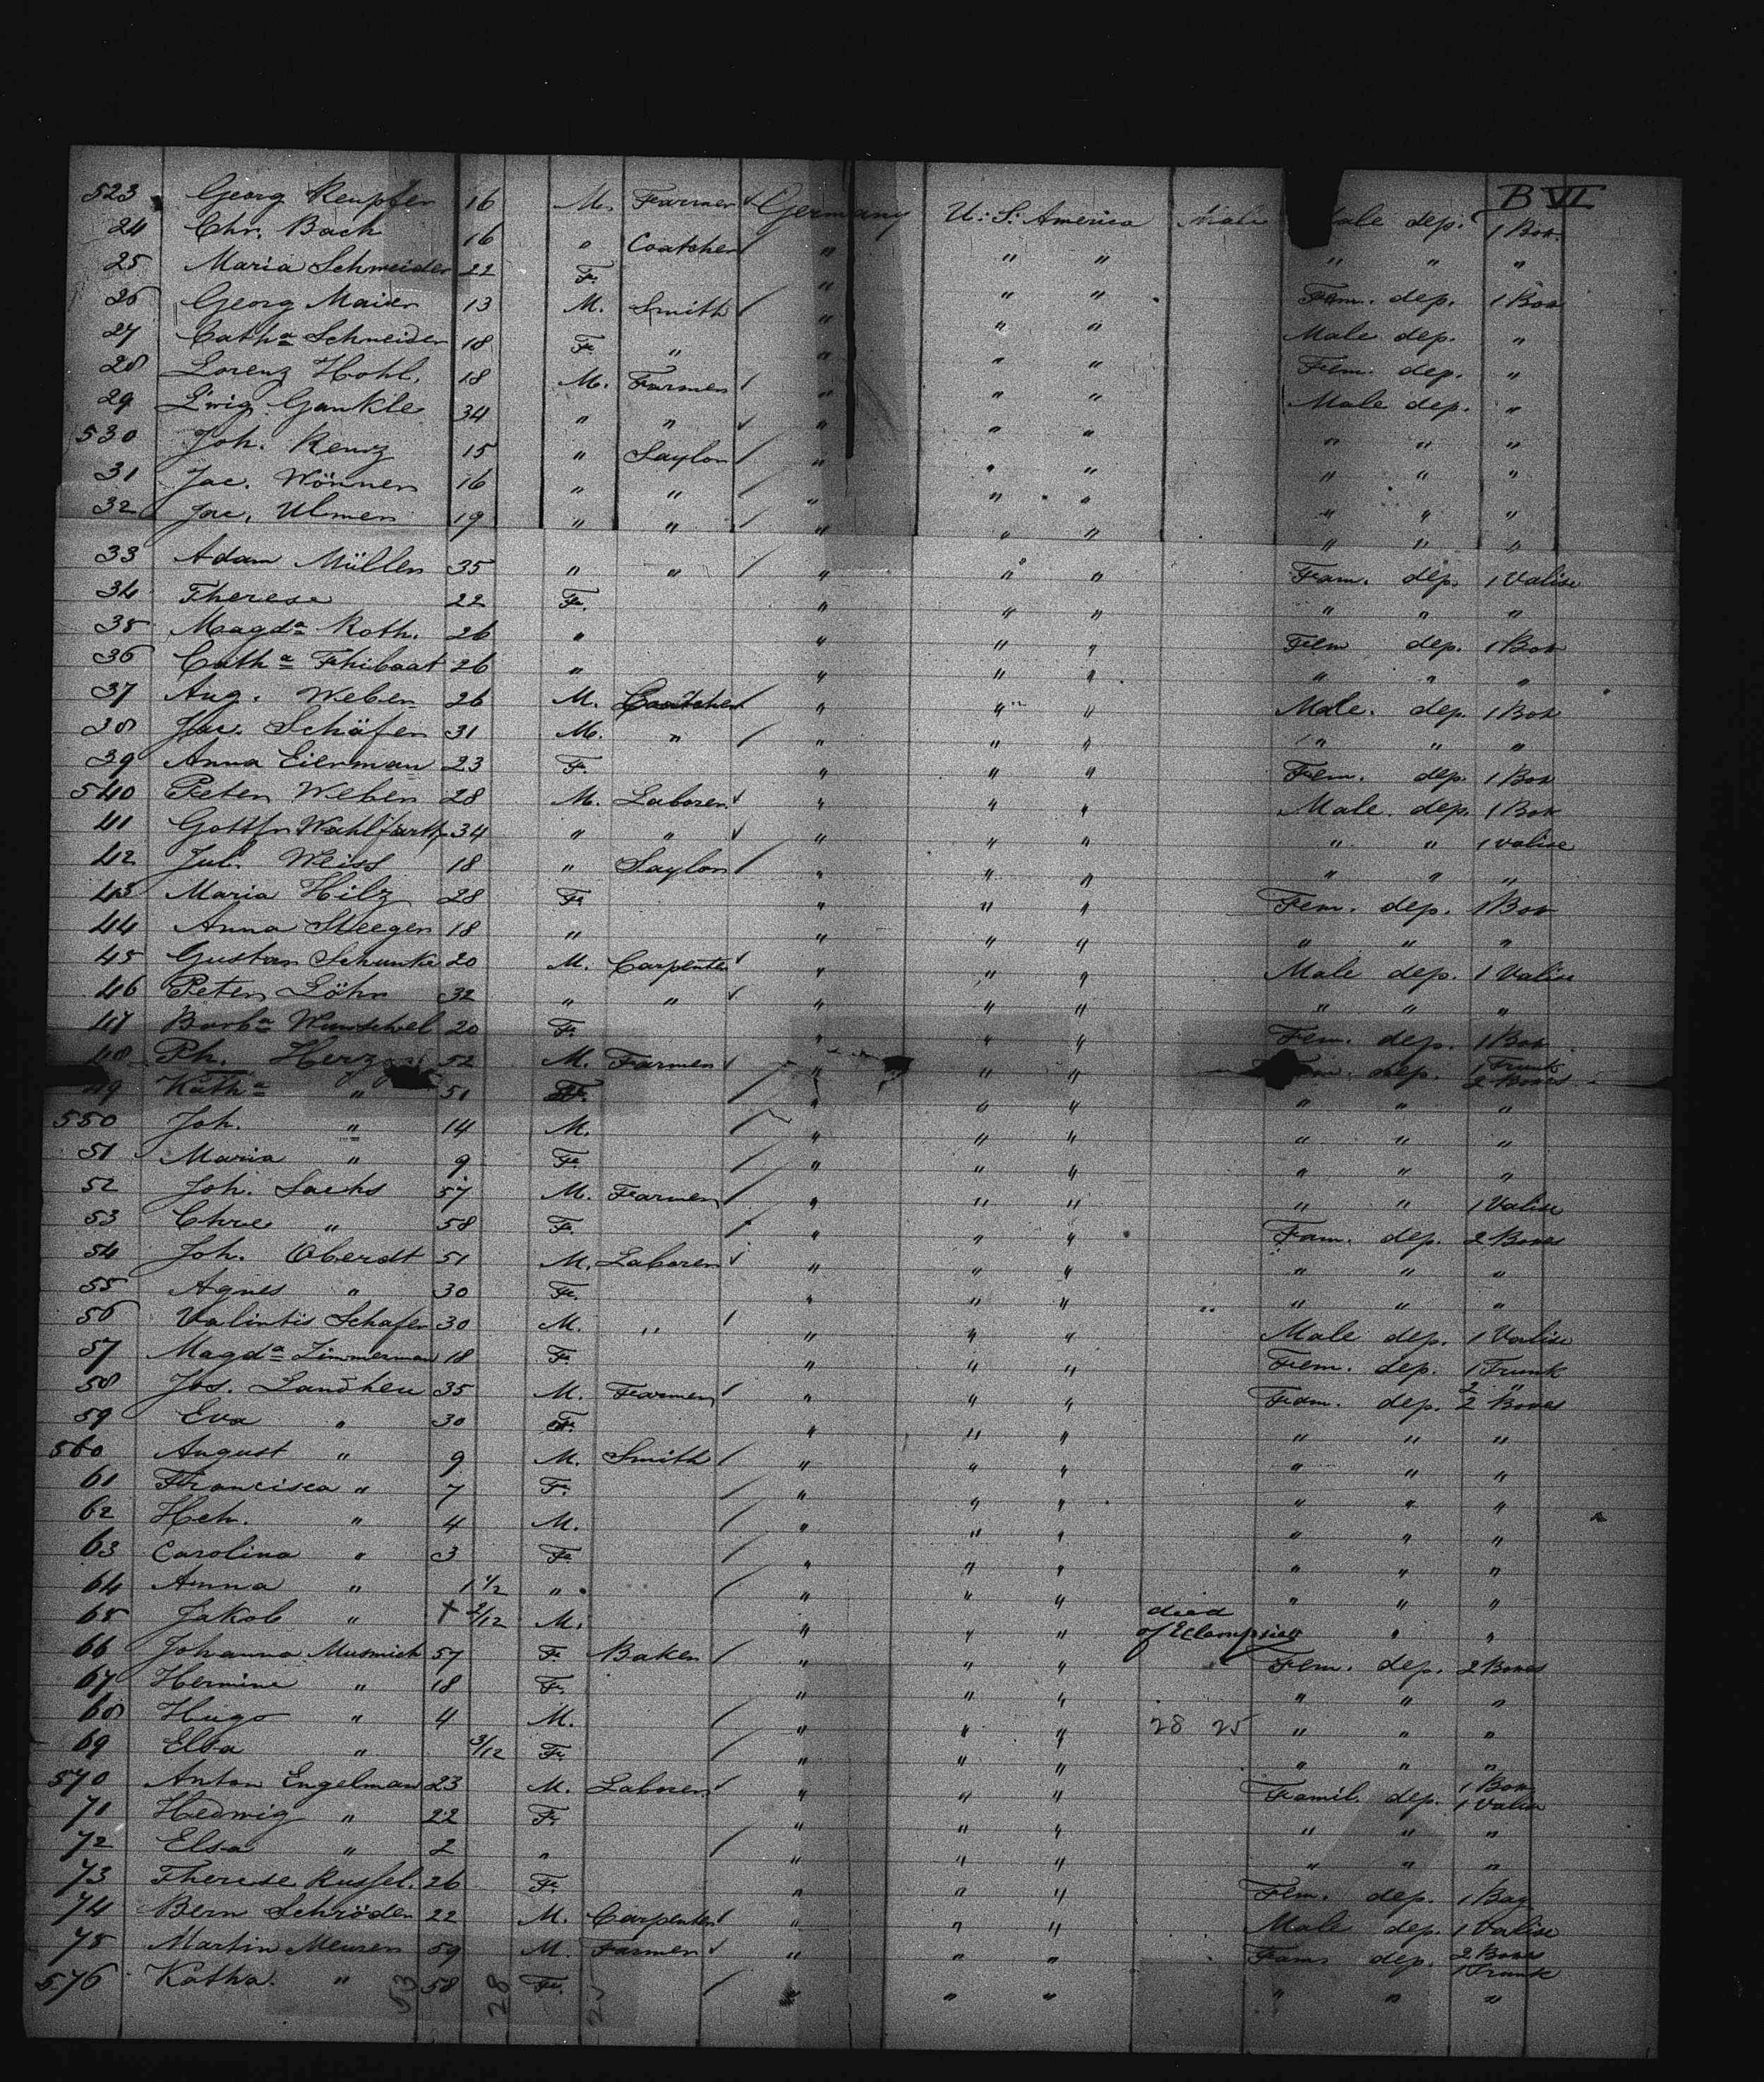 B VI
523 Georg Keupfer 16 M. Farmer ✓ Germany U. S. America Male Male dep. 1 Box
24 Chr. Bach 16 " Coatcher / " " " " " "
25 Maria Schneider 22 F. " " " Fem. dep. 1 Box
26 Georg Maier 13 M. Smith / " " " Male dep. "
27 Catha Schneider 18 F. " " " " Fem. dep. "
28 Lorenz Hohl. 18 M. Farmer / " " " Male dep. "
29 Lwig Gankle 34 " " ✓ " " " " " "
530 Joh. Renz 15 " Saylor / " " " " " "
31 Jac. Wönner 16 " " / " " " " " "
32 Jac. Ulmer 19 " " / " " " " " "
33 Adam Müller 35 " " / " " " Fam. dep. 1 Valise
34 Therese 22 F. " " " " " "
35 Magda Roth. 26 " " " " Fem dep. 1 Box
36 Catha Thibaat 26 " " " " " " "
37 Aug. Weber 26 M. Coatcher / " " " Male. dep. 1 Box
38 Jac. Schäfer 31 M. " / " " " " " "
39 Anna Eierman 23 F. " " " Fem. dep. 1 Box
540 Peter Weber 28 M. Laborer ✓ " " " Male. dep. 1 Box
41 Gottfr Wahlfarth 34 " " ✓ " " " " " 1 valise
42 Jul. Weiss 18 " Saylor / " " " " " "
43 Maria Hilz 28 F. " " " Fem. dep. 1 Box
44 Anna Steeger 18 " " " " " " "
45 Gustav Schunke 20 M. Carpenter ✓ " " " Male dep. 1 Valise
46 Peter Löhr 32 " " ✓ " " " " " "
47 Barba Wunschel 20 F. " " " Fem. dep. 1 Box
48 Ph. Herz 52 M. Farmer / " " " dep. 1 Trunk 2 Boxes
49 Katha " 51 F. / " " " " " "
550 Joh. " 14 M. / " " " " " "
51 Maria " 9 F. / " " " " " "
52 Joh. Sachs 57 M. Farmer / " " " " " 1 Valise
53 Chre " 58 F. / " " " Fam. dep. 2 Boxes
54 Joh. Oberdt 51 M. Laborer ✓ " " " " " "
55 Agnes " 30 F. " " " " " "
56 Valintis Schafer 30 M. " / " " " Male dep. 1 Valise
57 Magda Zimmerman 18 F. " " " Fem. dep. 1 Trunk
58 Jos. Landheu 35 M. Farmer / " " " Fam. dep. 2 " 2 Boxes
59 Eva " 30 F. " " " " " "
560 August " 9 M. Smith / " " " " " "
61 Francisca " 7 F. / " " " " " "
62 Hch. " 4 M. / " " " " " "
63 Carolina " 3 F. / " " " " " "
64 Anna " 1 1/2 " / " " " " " "
65 Jakob " + 2/12 M. " " " died of Eclampsia " "
66 Johanna Musmich 57 F Baker / " " " Fem. dep. 2 Boxes
67 Hermine " 18 F. " " " " " "
68 Hugo " 4 M. / " " " 28 25 " " "
69 Elsa " 3/12 F. / " " " " " "
570 Anton Engelman 23 M. Laborer / " " " Famil. dep. 1 Box 1 Valise
71 Hedwig " 22 F. " " " " " "
72 Elsa " 2 " / " " " " " "
73 Therese Russel. 26 F. " " " Fem. dep. 1 Bag
74 Bern Schröder 22 M. Carpenter / " " " Male dep. 1 Valise
75 Martin Meurer 59 M. Farmer ✓ " " " Fam. dep. 2 Boxes 1 Trunk
576 Katha. " 58 F. / " " " " " "
53 28 25